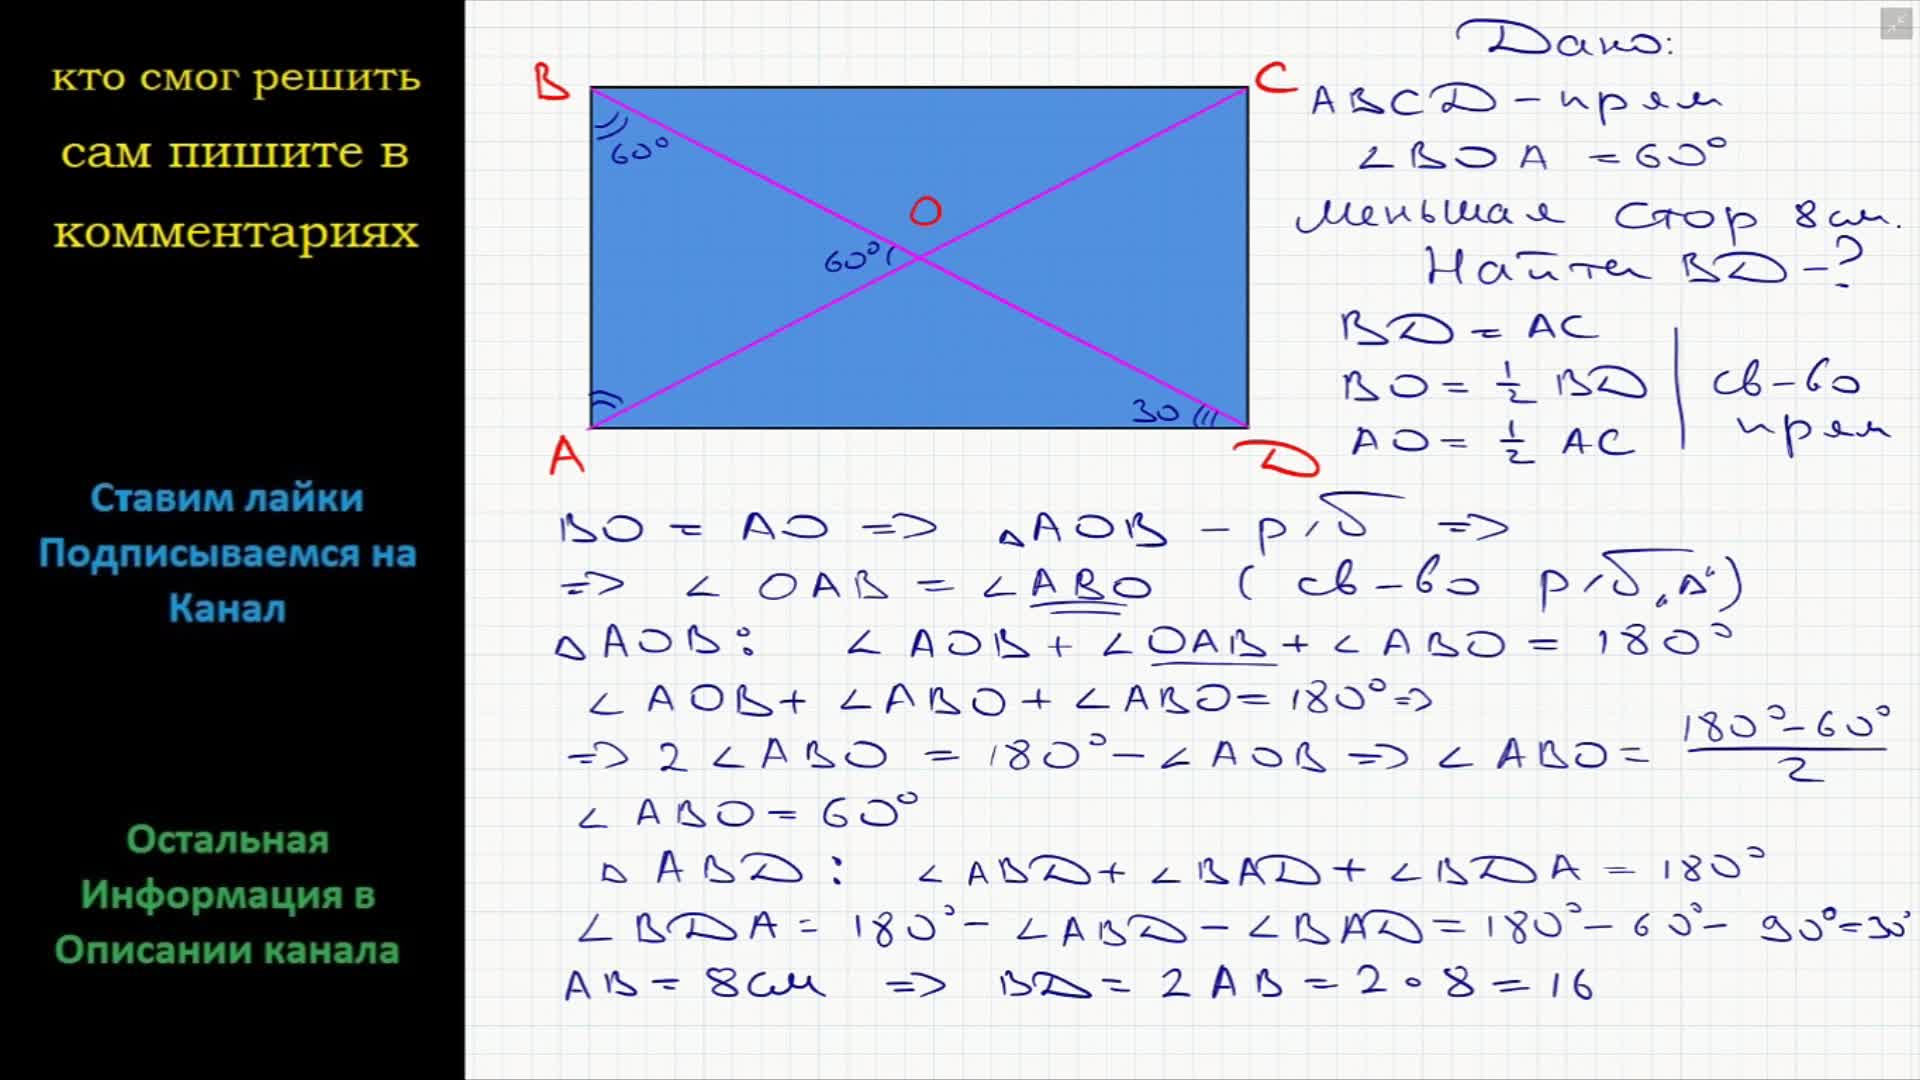 кто смог решить
сам пишите в
комментариях
Ставим лайки
Подписываемся на
Канал
Остальная
Информация в
Описании канала
B
C
60°
O
60°
30
A
D
Дано:
ABCD - прям
∠BOA = 60°
Меньшая стор 8 см.
Найти BD - ?
BD = AC
BO = 1/2 BD
AO = 1/2 AC
св-во
прям
BO = AO => △AOB - р/б =>
=> ∠OAB = ∠ABO (св-во р/б.△)
△AOB: ∠AOB + ∠OAB + ∠ABO = 180°
∠AOB + ∠ABO + ∠ABO = 180° =>
=> 2∠ABO = 180° - ∠AOB => ∠ABO = (180° - 60°)/2
∠ABO = 60°
△ABD: ∠ABD + ∠BAD + ∠BDA = 180°
∠BDA = 180° - ∠ABD - ∠BAD = 180° - 60° - 90° = 30°
AB = 8 см => BD = 2AB = 2 · 8 = 16